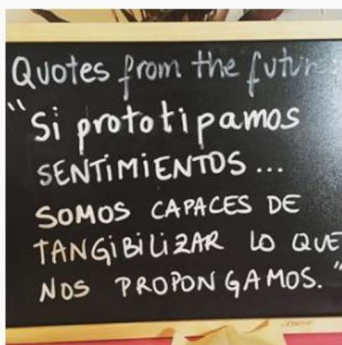 Quotes from the future:
"Si prototipamos
SENTIMIENTOS...
SOMOS CAPACES DE
TANGIBILIZAR LO QUE
NOS PROPONGAMOS."